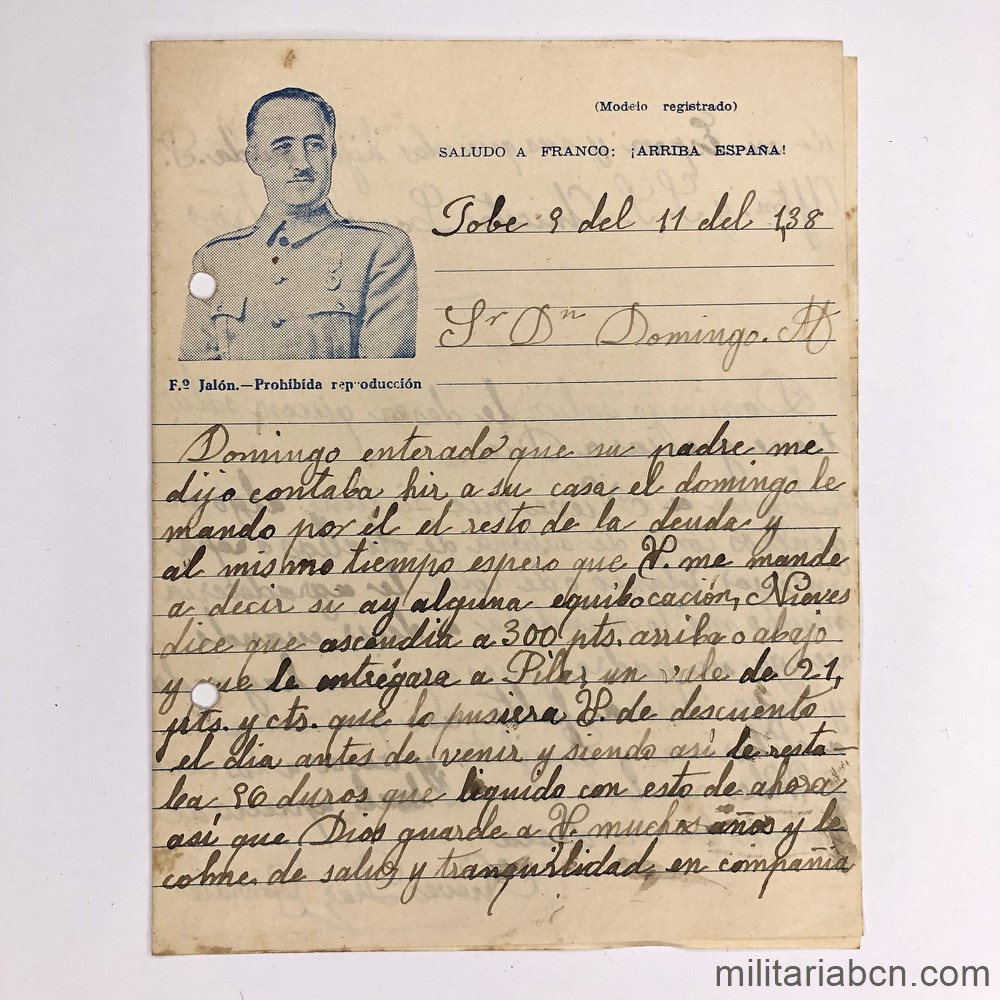 (Modelo registrado)
SALUDO A FRANCO: ¡ARRIBA ESPAÑA!
Tobe 9 del 11 del 1,38
Sr Dn Domingo. M
F.º Jalón.—Prohibida reproducción
Domingo enterado que su padre me
dijo contaba hir a su casa el domingo le
mando por él el resto de la deuda y
al mismo tiempo espero que V. me mande
a decir si ay alguna equibocación, Nieves
dice que ascendia a 300 pts. arriba o abajo
y que le entrégara a Pilar un vale de 21,
pts. y cts. que lo pusiera V. de descuento
el dia antes de venir y siendo así le resta-
ba 96 duros que liquido con esto de ahora
así que Dios guarde a V. muchos años y le
colme de salud y tranquilidad en compañia
militariabcn.com